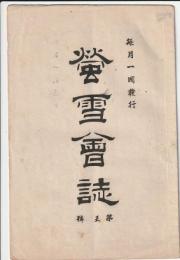 每月一回發行
螢雪會誌
第五輯